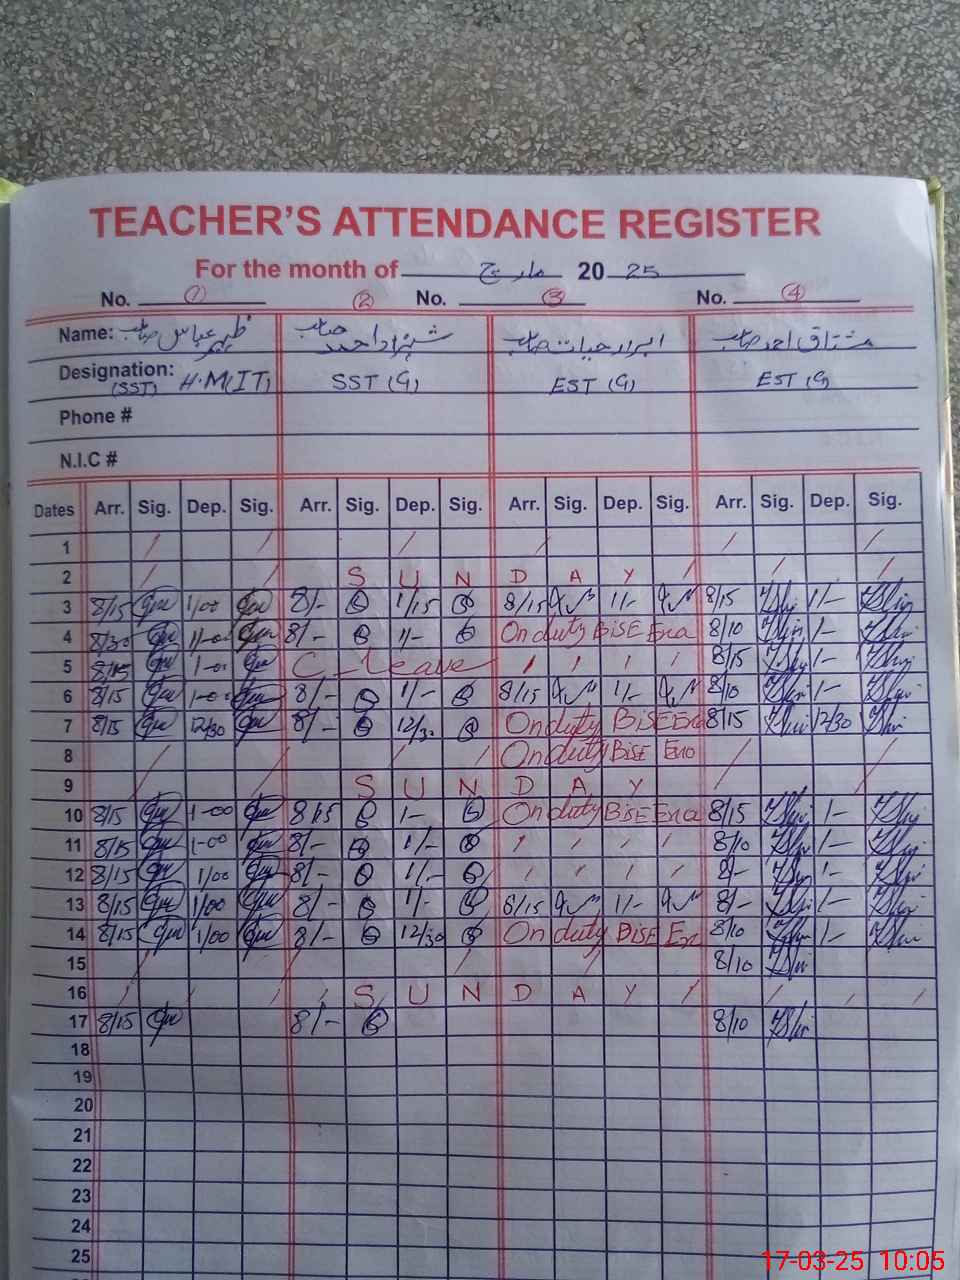 TEACHER'S ATTENDANCE REGISTER
For the month of مارچ 2025
No. ① ② No. ③ No. ④
Name: عباس صاحب شہزاد احمد صاحب ابرار حیات صاحب مشتاق احمد صاحب
Designation: (SST) H.M(IT) SST (G) EST (G) EST (G)
Phone #
N.I.C #
Dates Arr. Sig. Dep. Sig. Arr. Sig. Dep. Sig. Arr. Sig. Dep. Sig. Arr. Sig. Dep. Sig.
1
2 S U N D A Y
3 8/15 1/00 8/- 1/15 8/15 1/- 8/15 1/-
4 8/30 1/-00 8/- 1/- On duty BISE 8/10 1/-
5 8/15 1-00 C-leave 8/15 1/-
6 8/15 1-00 8/- 1/- 8/15 1/- 8/10 1/-
7 8/15 12/30 8/- 12/30 On duty BISE 8/15 12/30
8 On duty BISE
9 S U N D A Y
10 8/15 1-00 8/15 1- On duty BISE 8/15 1/-
11 8/15 1-00 8/- 1/- 8/10 1/-
12 8/15 1/00 8/- 1/- 8/- 1-
13 8/15 1/00 8/- 1/- 8/15 1/- 8/- 1/-
14 8/15 1/00 8/- 12/30 On duty BISE 8/10 1/-
15 8/10
16 S U N D A Y
17 8/15 8/- 8/10
18
19
20
21
22
23
24
25
17-03-25 10:05